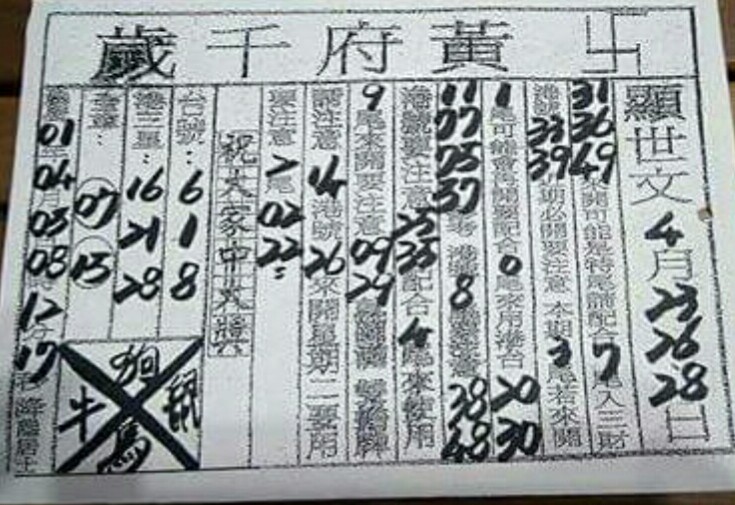 卍黃府千歲
顯世文4月23 26 28日
31 36 49來開可能是特尾請配 7尾入三財
港號33 39期必開要注意 本期3尾若來開
1尾可能會再開要配合0尾來用港台20 30
11 07 05 37 港 8 要注意38 48
港號要注意25 35配合4尾來使用
9尾來開要注意09 29
請注意14港號26來開星期二要用
要注意2尾02 22
祝大家中大獎
台號：6 1 8
港三星：16 21 28
全車：07 15
01 04月03 08 12分17秒
狗
牛 鼠
馬